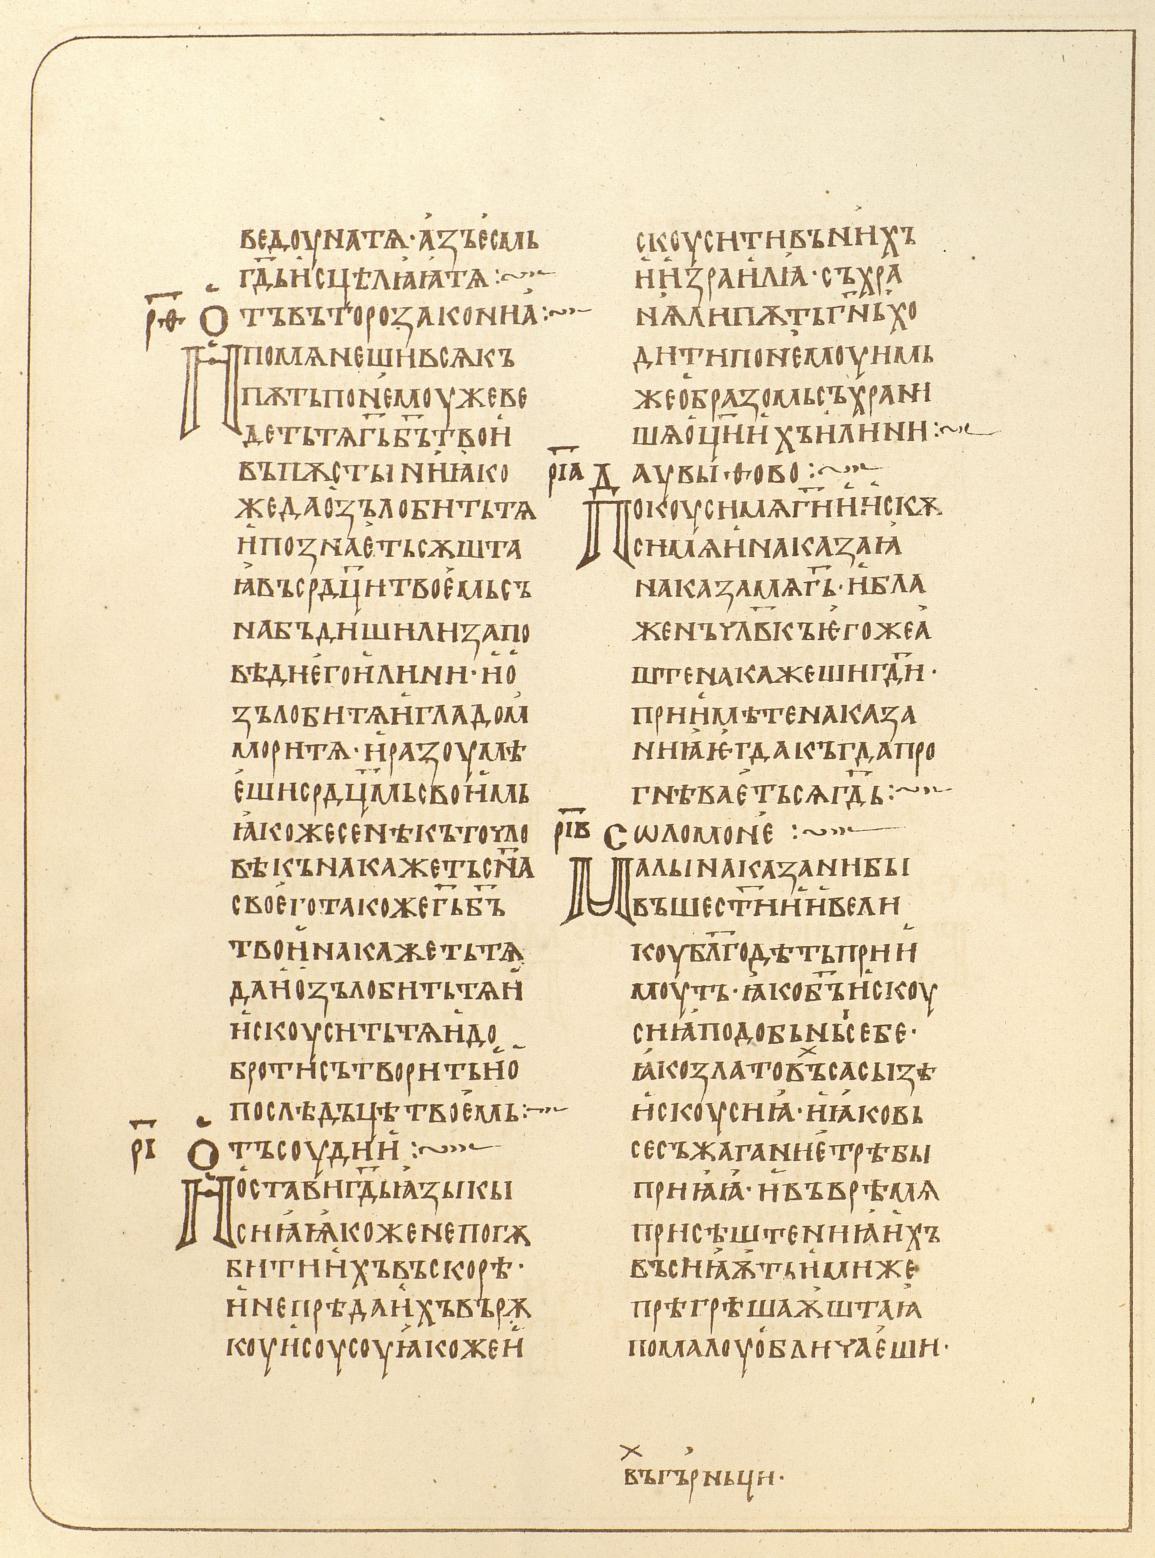 ведоу на тѧ · азъ есмь
г҃дь исцѣлꙗꙗ тѧ :~
р҃ѳ Отъ въторозаконниꙗ :~
И помѧнеши вьсѧкъ
пѫть по немоу же ве
деть тѧ г҃ь б҃ъ твои
въ пѫстыни и ꙗко
же да озълобить тѧ
и познаеть сѫшта
ꙗ въ срд҃ци твоемь съ
набъдиши ли запо
вѣди его или ни · и о
зълоби тѧ и гладом
мори тѧ · и разоумѣ
еши срд҃цмь своимь
ꙗкоже се нѣкъто чло
вѣкъ накажеть с҃на
своего тако же г҃ь б҃ъ
твои накажеть тѧ
да и озълобить тѧ и
искоусить тѧ и до
бро ти сътворить и о
послѣдъце твоемь :~
р҃і Отъ соудии :~
И остави г҃дь ꙗзыкы
сиꙗ ꙗкоже не погѫ
бити ихъ въскорѣ ·
и не прѣда ихъ въ рѫ
коу исоусоу ꙗкоже и
скоусити въ нихъ
и израилꙗ · съхра
нѧ ли пѫть г҃нь хо
дити по немоу имь
же образомь съхрани
шѧ о҃ци ихъ или ни :~
р҃іа Д а҃у в҃ы · ѳ ово :~
Покоуси мѧ г҃и и искѫ
си мѧ и наказаꙗ
наказа мѧ г҃ь · и бла
женъ чл҃вкъ ѥгоже а
ште накажеши г҃ди ·
приимѣте наказа
ниꙗ ѥгда къгда про
гнѣваеть сѧ г҃дь :~
р҃ів Соломоне :~
Малы наказани бы
въше ст҃ии и вели
коу благодѣть прии
моуть · ꙗко б҃ъ искоу
си ꙗ подобьны себе ·
ꙗко злато бъ са сы зѣ
искоуси ꙗ · и ꙗко вь
се съжагание трѣбы
приꙗ ꙗ · и въ врѣмѧ
присѣштениꙗ ихъ
въсиꙗѫть ими же
прѣгрѣшаѫштаꙗ
помалоу обличаеши ·
въ гърньци ·